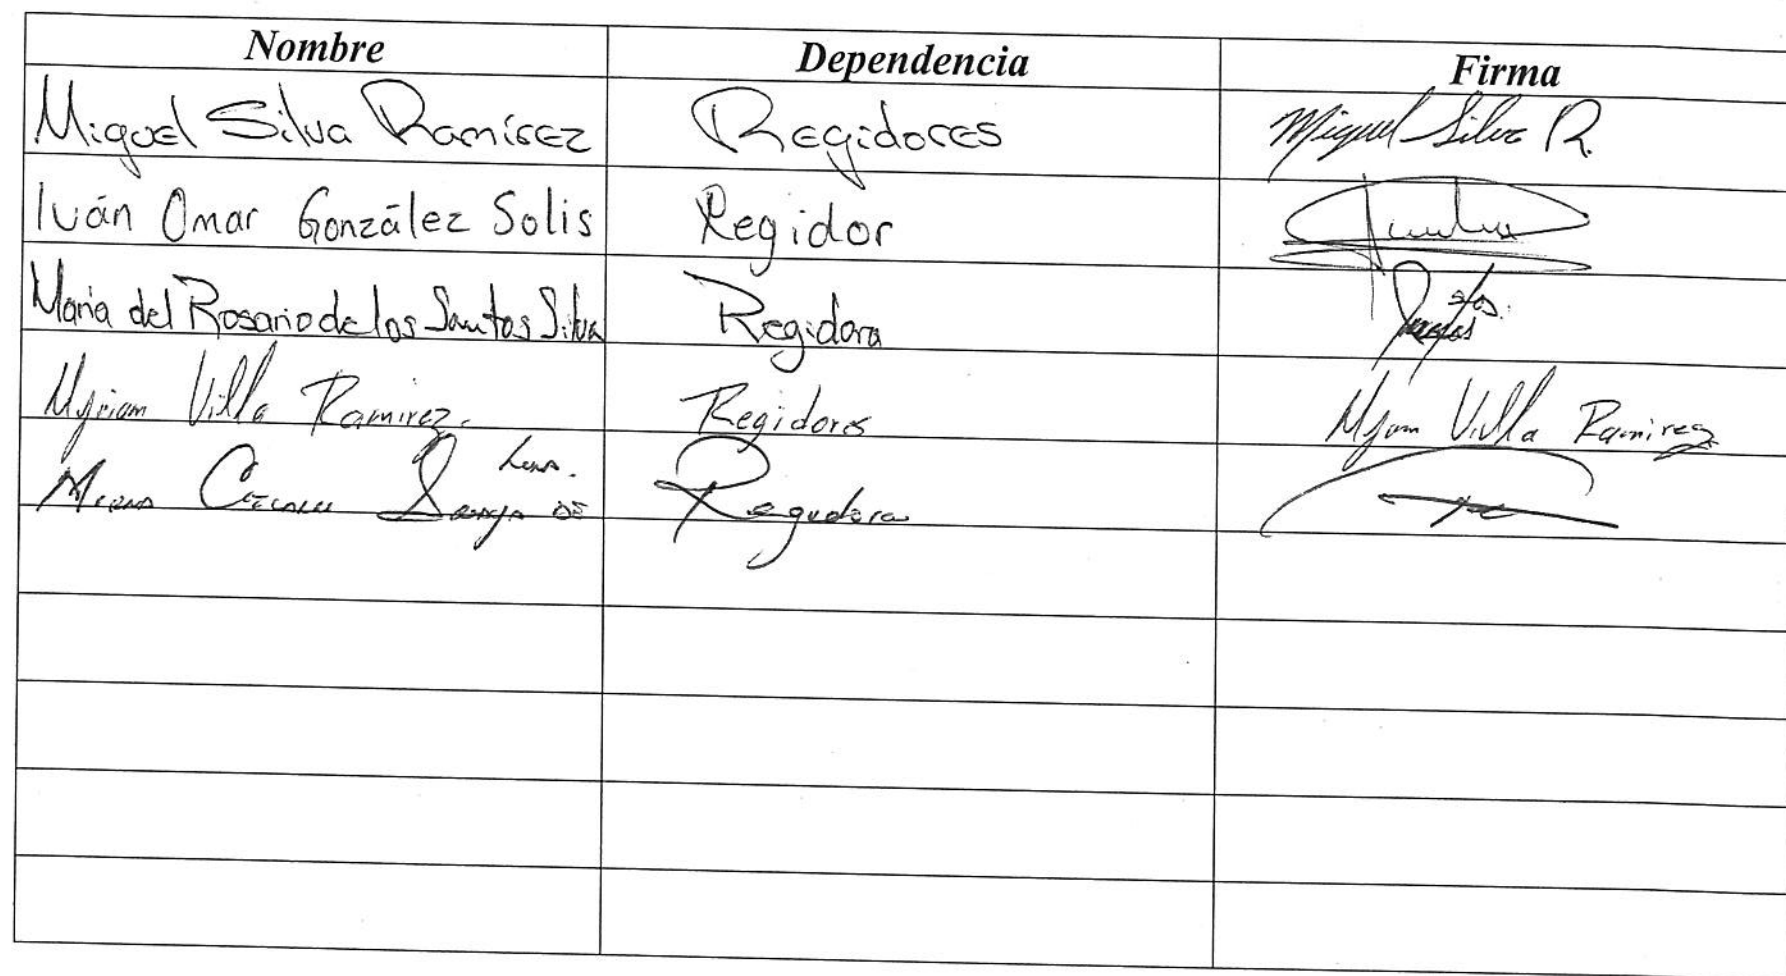 Nombre Dependencia Firma
Miguel Silva Ramírez Regidores Miguel Silva R.
Iván Omar González Solis Regidor
María del Rosario de los Santos Silva Regidora
Myriam Villa Ramirez. Regidores Myriam Villa Ramirez
Luna.
Mirna de Regidora